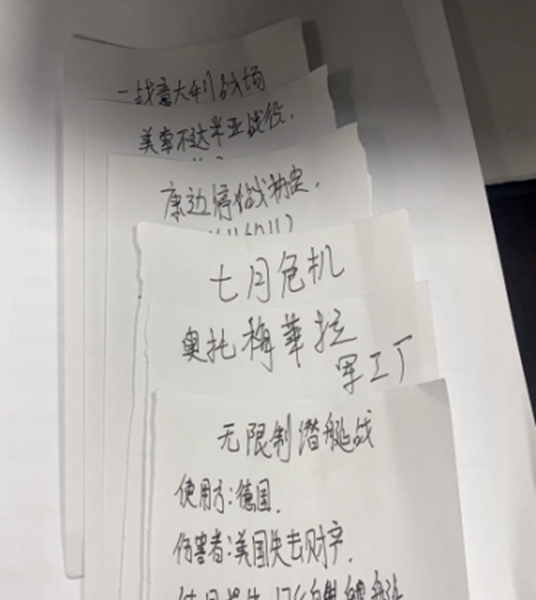 一战意大利战场
美索不达米亚战役.
康边停战协定.
七月危机
奥托梅华拉
军工厂
无限制潜艇战
使用方:德国.
伤害者:美国失去财产.